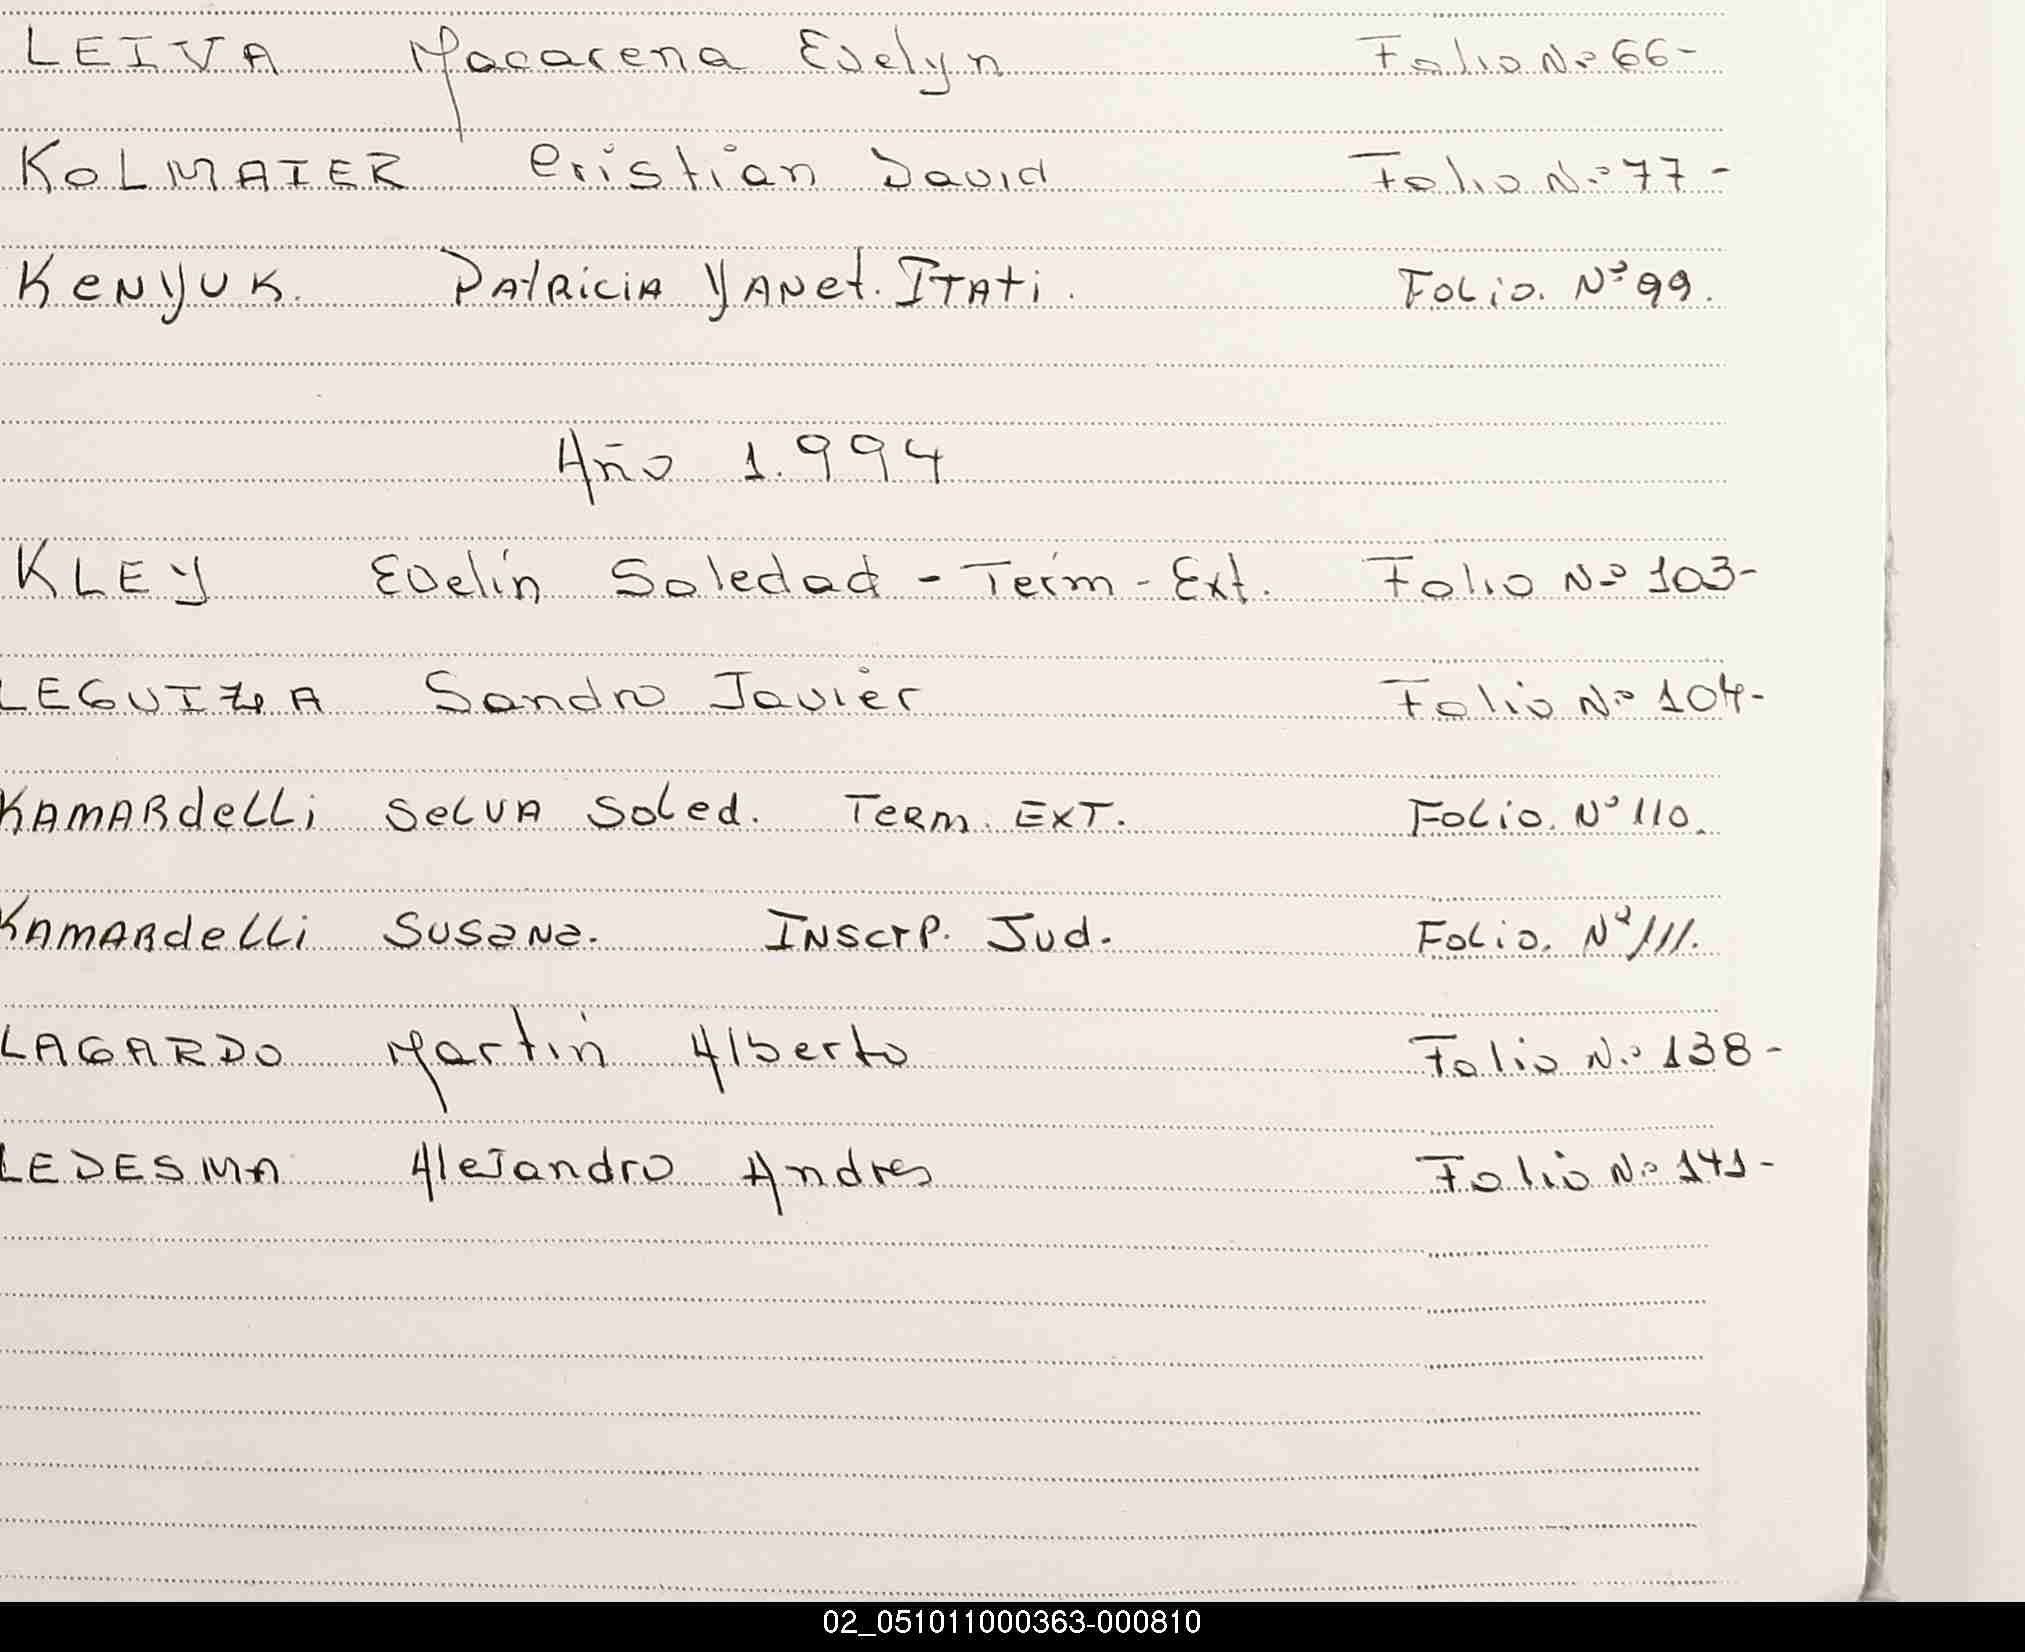 LEIVA Macarena Evelyn Folio Nº 66-
KOLMAIER Cristian David Folio Nº 77-
KENYUK. PATRICIA YANet. ITATi. FOLiO. Nº 99.
Año 1.994
KLEY Evelín Soledad - Term - Ext. Folio Nº 103-
LEGUIZA Sandro Javier Folio Nº 104-
KAMARdeLLi SeLVA Soled. TeRm. EXT. FOLiO. Nº 110.
KAMARdeLLi SUSaNa. INscrP. Jud. FOLiO. Nº 111.
LAGARDO Martín Alberto Folio Nº 138-
LEDESMA AleJandro Andres Folio Nº 141-
02_051011000363-000810